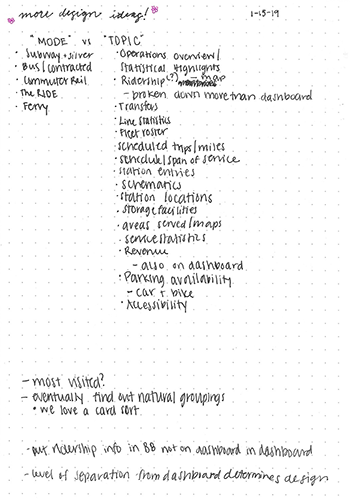 more design ideas!
1-15-19
"MODE" vs "TOPIC"
• Subway + silver
• Bus / contracted
• Commuter Rail
• The RIDE
• Ferry
• Operations overview/
Statistical Highlights
• Ridership (?) - map
- broken down more than dashboard
• Transfers
• Line statistics
• Fleet roster
• scheduled trips/miles
• schedule/span of service
• station entries
• schematics
• station locations
• storage facilities
• areas served/maps
• service statistics
• Revenue
- also on dashboard
• Parking availability
- car + bike
• Accessibility
- most visited?
- eventually find out natural groupings
• we love a card sort
- put ridership info in BB not on dashboard in dashboard
- level of separation from dashboard determines design